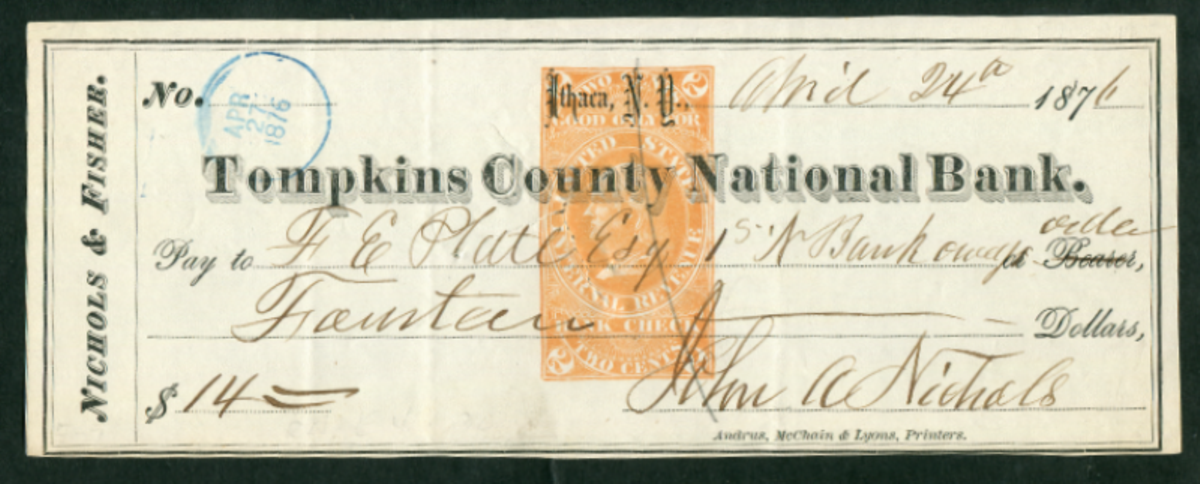 NICHOLS & FISHER.
No.
APR 27 1876
Ithaca, N. Y., April 24th 1876
Tompkins County National Bank.
Pay to F E Platt Esq 1st N Bank Owego or order Bearer,
Fourteen Dollars,
$ 14
John A Nichols
Andrus, McChain & Lyons, Printers.
TWO CENTS
GOOD ONLY FOR
UNITED STATES
INTERNAL REVENUE
BANK CHECK
TWO CENTS
2
2
2
2